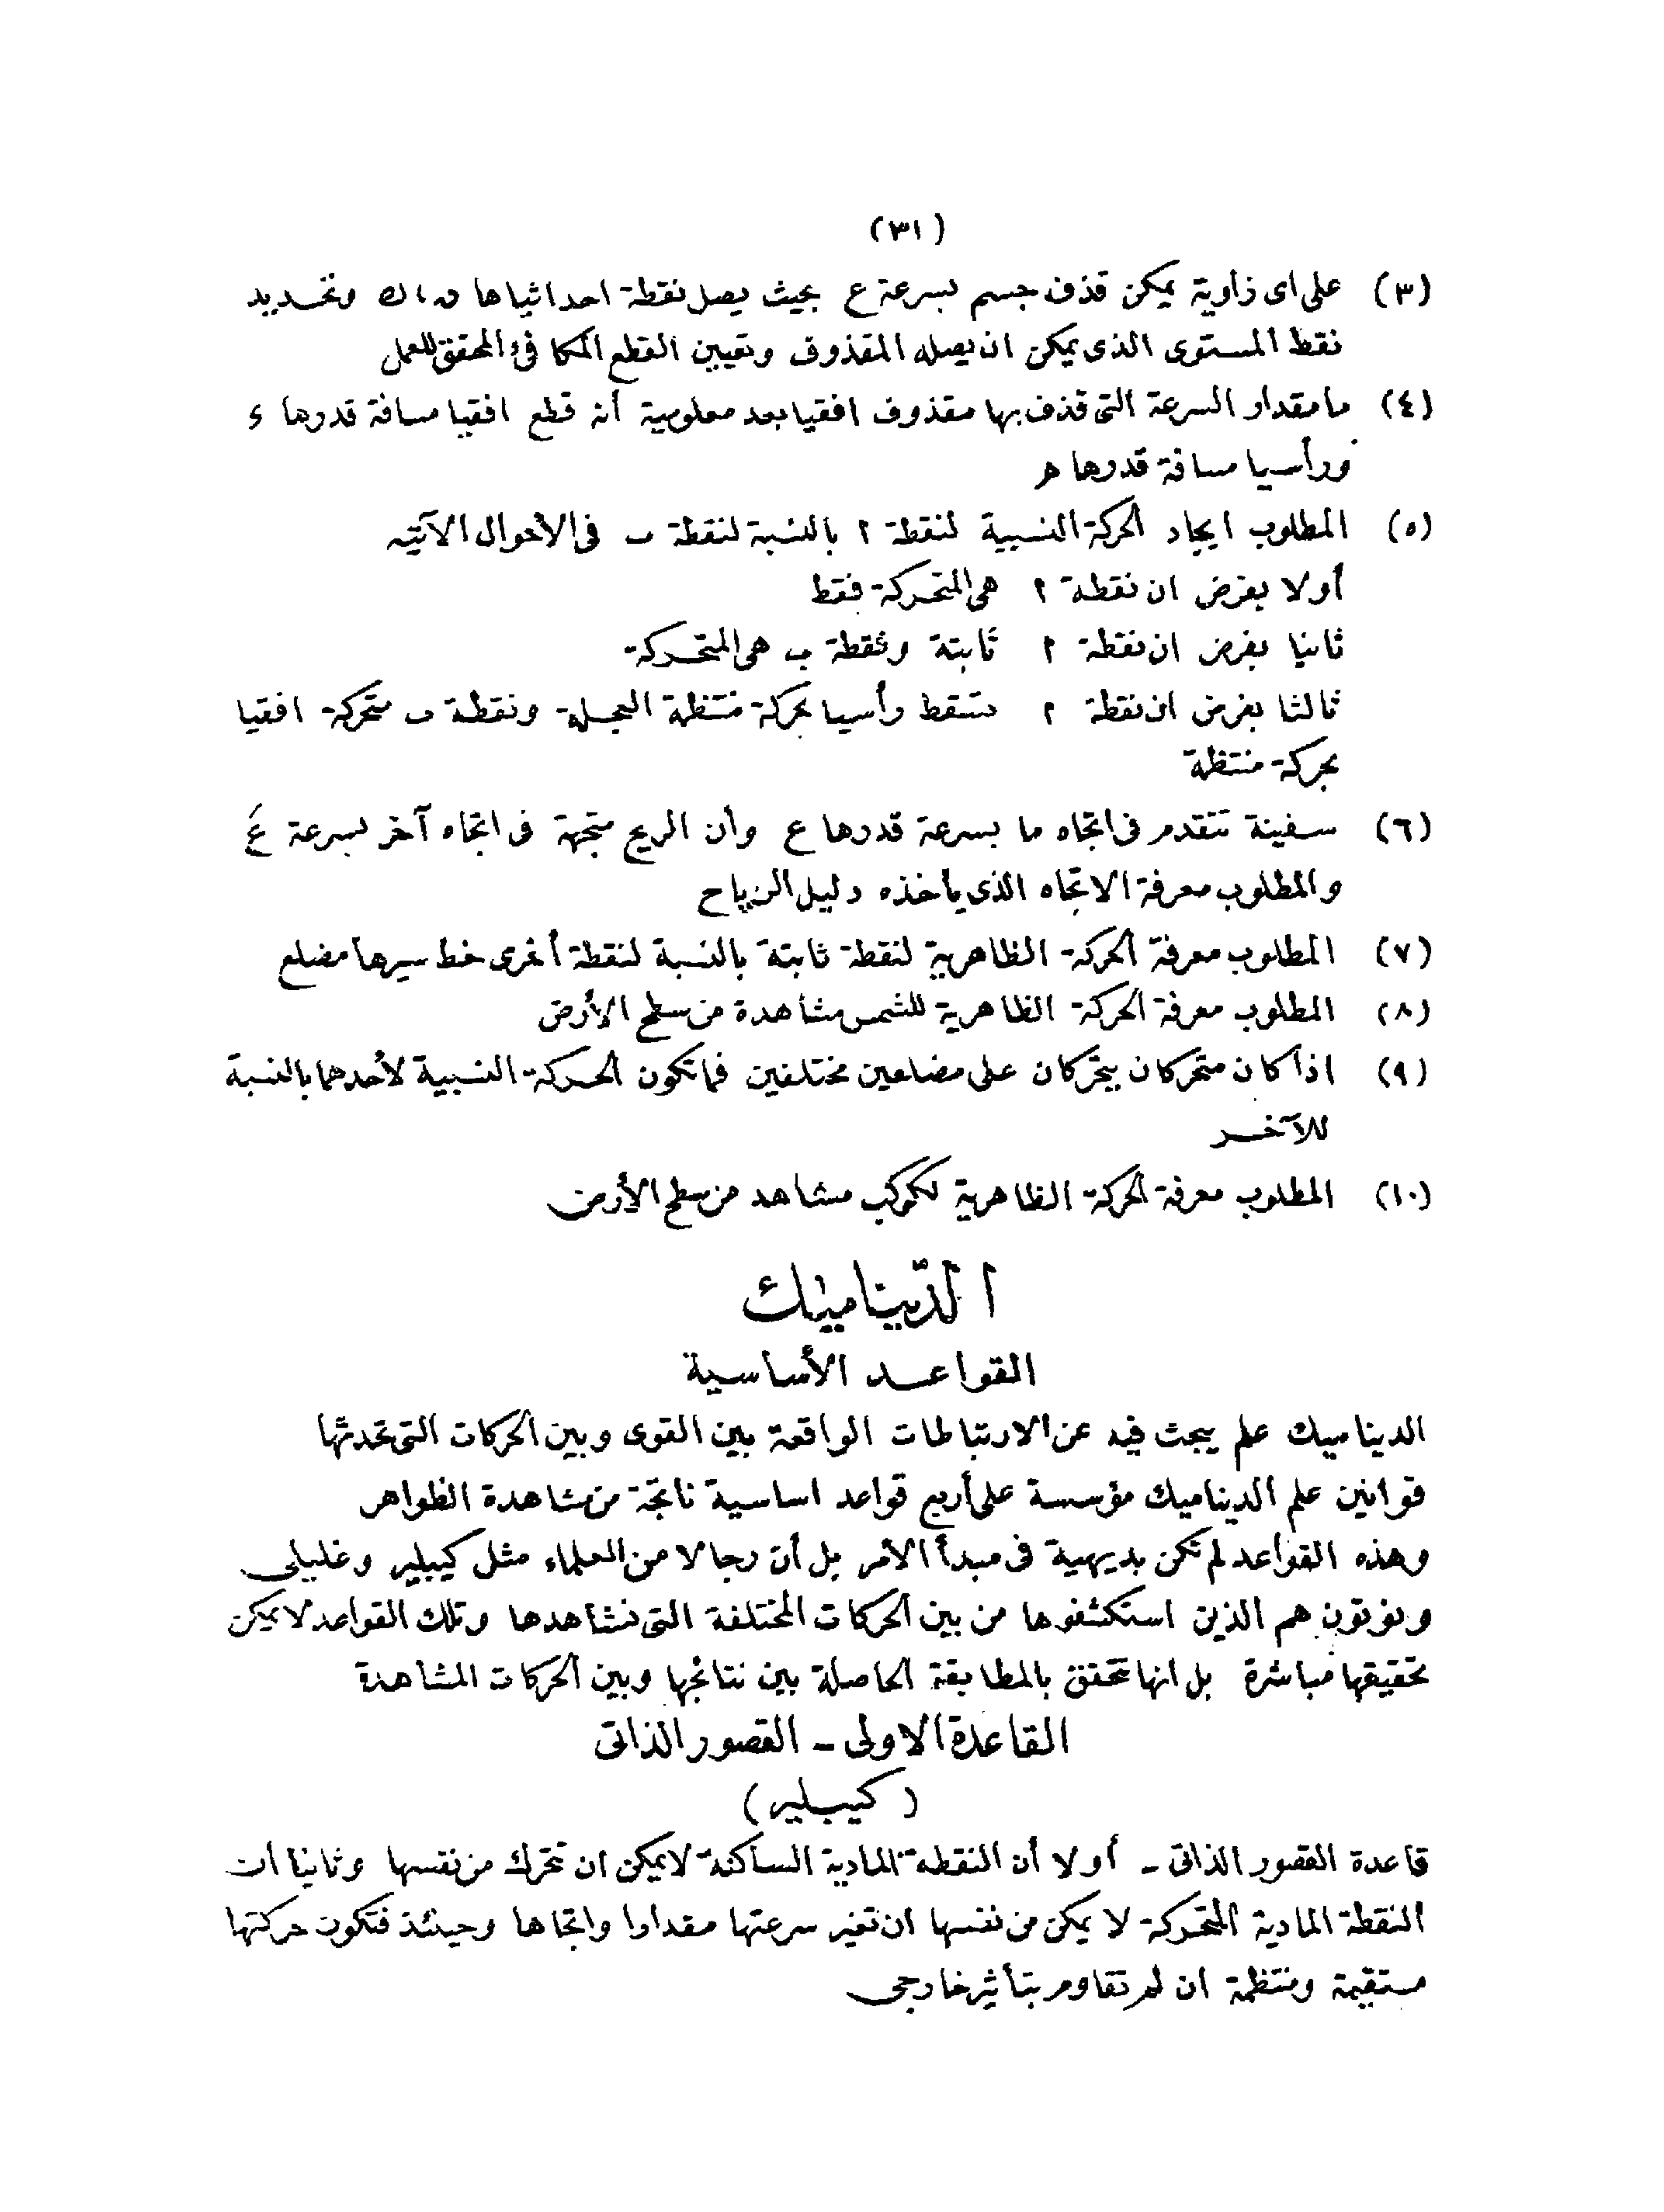 (٣١)
(٣) على اى زاوية يمكن قذف جسم بسرعة ع بحيث يصل نقطة احداثياها ں ، ك وتحديد
نقط المستوى الذى يمكن ان يصله المقذوف وتعيين القطع المكافئ المحقق للعمل
(٤) ما مقدار السرعة التى قذف بها مقذوف افقيا بعد معلومية أنه قطع افقيا مسافة قدرها ء
ورأسيا مسافة قدرها ھ
(٥) المطلوب ايجاد الحركة النسبية لنقطة ا بالنسبة لنقطة ب فى الأحوال الآتية
أولا بفرض ان نقطة ا هى المتحركة فقط
ثانيا بفرض ان نقطة ا ثابتة ونقطة ب هى المتحركة
ثالثا بفرض ان نقطة ا تسقط رأسيا بحركة منتظمة العجلة ونقطة ب متحركة افقيا
بحركة منتظمة
(٦) سفينة تتقدم فى اتجاه ما بسرعة قدرها ع وأن الريح متجهة فى اتجاه آخر بسرعة عَ
والمطلوب معرفة الاتجاه الذى يأخذه دليل الرياح
(٧) المطلوب معرفة الحركة الظاهرية لنقطة ثابتة بالنسبة لنقطة أخرى خط سيرها مضلع
(٨) المطلوب معرفة الحركة الظاهرية للشمس مشاهدة من سطح الأرض
(٩) اذا كان متحركان يتحركان على مضلعين مختلفين فما تكون الحركة النسبية لأحدهما بالنسبة
للآخر
(١٠) المطلوب معرفة الحركة الظاهرية لكوكب مشاهد من سطح الأرض
الدّيناميك
القواعد الأساسية
الديناميك علم يبحث فيه عن الارتباطات الواقعة بين القوى وبين الحركات التى تحدثها
قوانين علم الديناميك مؤسسة على أربع قواعد اساسية ناتجة من مشاهدة الظواهر
وهذه القواعد لم تكن بديهية فى مبدأ الأمر بل أن رجالا من العلماء مثل كيبلير وغليلى
ونوتون هم الذين استكشفوها من بين الحركات المختلفة التى نشاهدها وتلك القواعد لا يمكن
تحقيقها مباشرة بل انها تحقق بالمطابقة الحاصلة بين نتائجها وبين الحركات المشاهدة
القاعدة الاولى - القصور الذاتى
(كيبلير)
قاعدة القصور الذاتى - أولا أن النقطة المادية الساكنة لا يمكن ان تتحرك من نفسها وثانيا ان
النقطة المادية المتحركة لا يمكن من نفسها ان تغير سرعتها مقدارا واتجاها وحينئذ فتكون حركتها
مستقيمة ومنتظمة ان لم تقاوم بتأثير خارجى